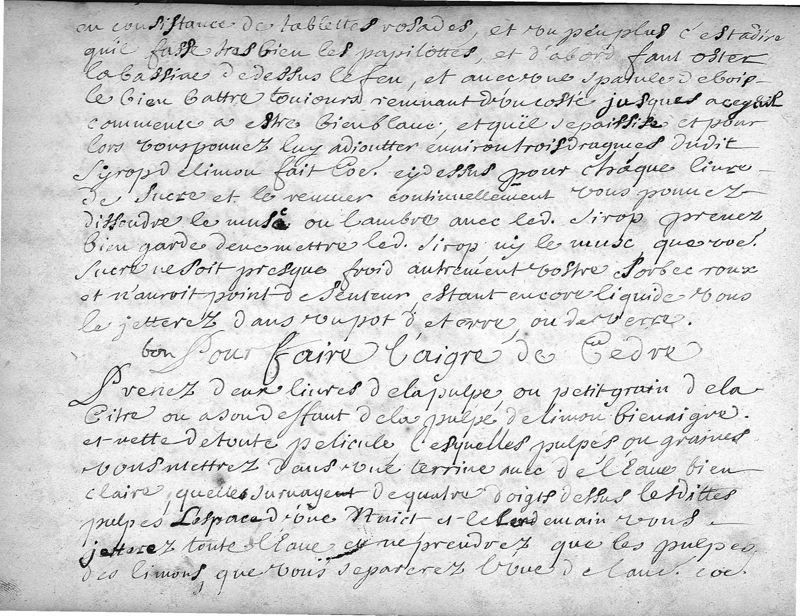 en consistance de tablettes rosades, et un peu plus c'est adire
qu'il fasse tres bien les papilottes, et d'abord faut oster
la bassine de dessus le feu, et avec une spatule de bois
le bien battre toujours remuant d'un costé jusques a ce qu'il
commence a estre bien blanc, et qu'il sepaississe et pour
lors vous pouvez luy adioutter environ trois dragmes dudit
Syrop de limon fait Coe. cy dessus pour chaque livre
de Sucre et le remuer continuellement vous pouvez
dissoudre le musc ou l'ambre avec led. Sirop prenez
bien garde de ne mettre led. Sirop ny le musc que vre.
Sucre ne soit presque froid autrement vostre Sorbec roux
et n'auroit point de Senteur estant encore liquide vous
le jetterez dans un pot de terre, ou de verre.
bon Pour faire l'aigre de Cedre
Prenez deux livres de la pulpe ou petit grain de la
Citre ou a son deffaut de la pulpe de limon bien aigre.
et nette de toute pelicule, lesquelles pulpes ou graines
vous mettrez dans une terrine avec de l'Eau bien
claire, quelles surnagent de quatre doigts dessus lesdittes
pulpes Lespace d'une Nuict et le Lendemain vous
jetterez toute l'Eau et ne prendrez que les pulpes
des limons, que vous separerez l'une de laut. coe.